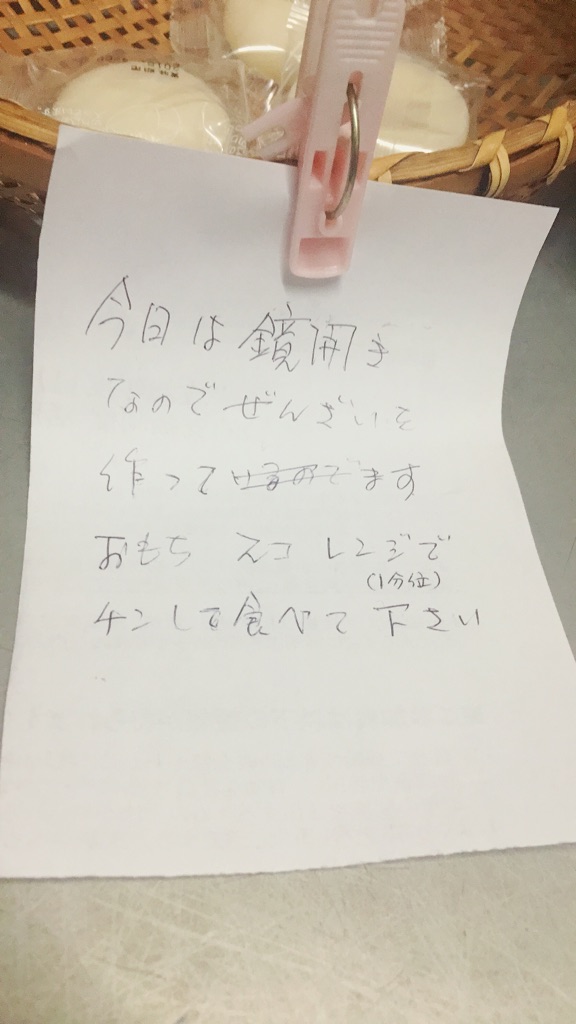 今日は鏡開き
なのでぜんざいを
作って ます
おもち 2コ レンジで
(1分位)
チンして食べて下さい